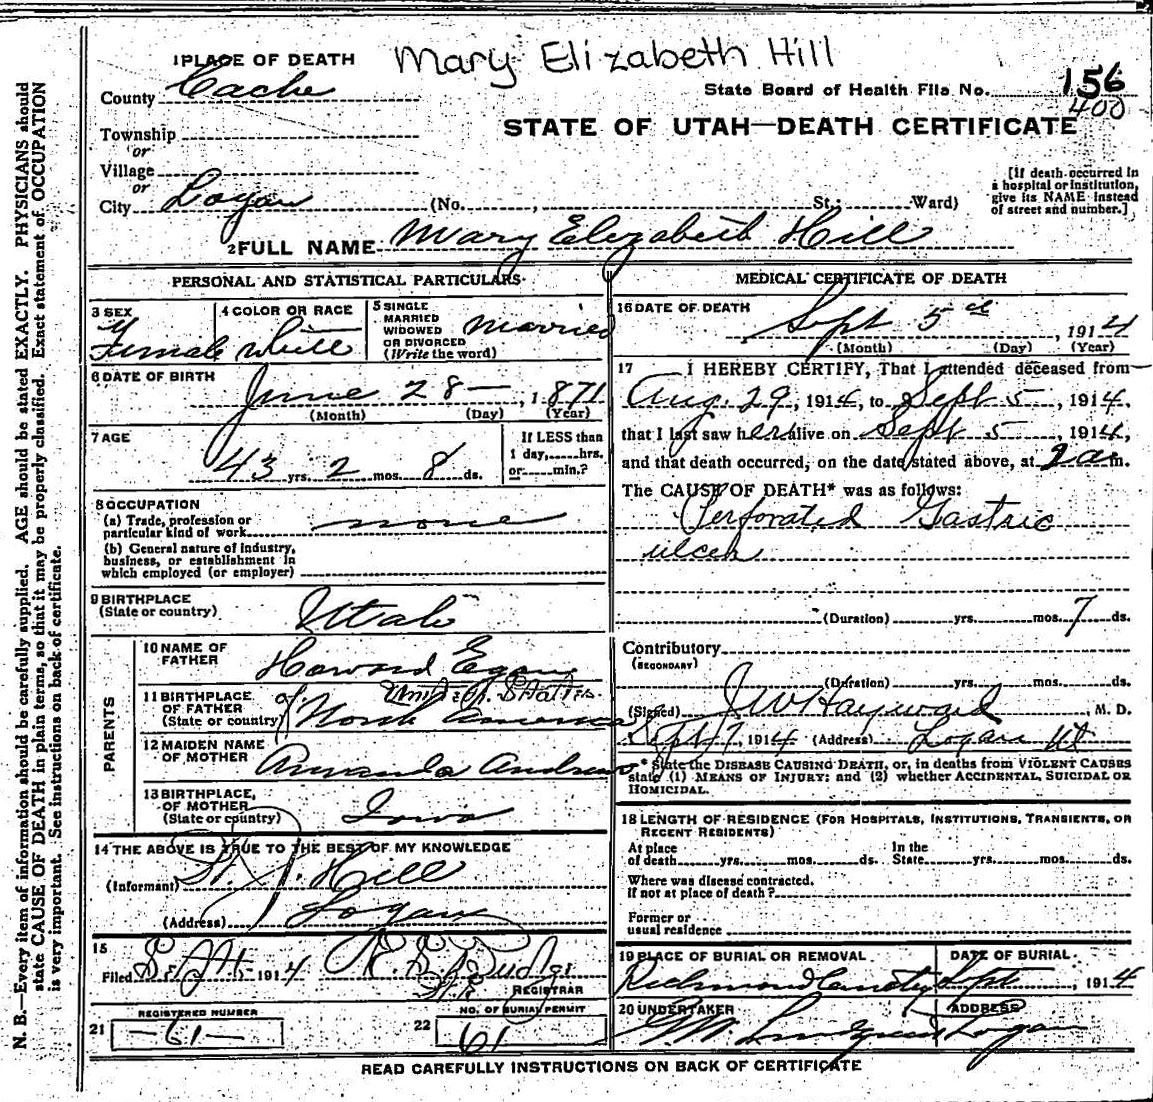 Mary Elizabeth Hill
1 PLACE OF DEATH
County Cache
State Board of Health File No. 156
400
Township
or
STATE OF UTAH—DEATH CERTIFICATE
Village
or
City Logan (No. , St.; Ward)
[If death occurred in
a hospital or institution,
give its NAME instead
of street and number.]
2 FULL NAME Mary Elizabeth Hill
PERSONAL AND STATISTICAL PARTICULARS
3 SEX
Female
4 COLOR OR RACE
White
5 SINGLE
MARRIED
WIDOWED
OR DIVORCED
(Write the word)
Married
6 DATE OF BIRTH
June 28 — , 1871
(Month) (Day) (Year)
7 AGE
43 yrs. 2 mos. 8 ds.
If LESS than
1 day, hrs.
or min.?
8 OCCUPATION
(a) Trade, profession or
particular kind of work none
(b) General nature of industry,
business, or establishment in
which employed (or employer)
9 BIRTHPLACE
(State or country) Utah
PARENTS
10 NAME OF
FATHER Howard Egan
11 BIRTHPLACE
OF FATHER
(State or country)
United States
of North America
12 MAIDEN NAME
OF MOTHER Amanda Andrews
13 BIRTHPLACE
OF MOTHER
(State or country) Iowa
14 THE ABOVE IS TRUE TO THE BEST OF MY KNOWLEDGE
(Informant) Hill
(Address) Logan
15
Filed 1914
REGISTRAR
REGISTERED NUMBER
21 —61—
NO. OF BURIAL PERMIT
22 61
MEDICAL CERTIFICATE OF DEATH
16 DATE OF DEATH
Sept 5th , 1914
(Month) (Day) (Year)
17 I HEREBY CERTIFY, That I attended deceased from
Aug. 29, 1914, to Sept 5, 1914,
that I last saw her alive on Sept 5, 1914,
and that death occurred, on the date stated above, at 2 a m.
The CAUSE OF DEATH* was as follows:
Perforated Gastric
ulcer
(Duration) yrs. mos. 7 ds.
Contributory
(SECONDARY)
(Duration) yrs. mos. ds.
(Signed) J W Hayward, M. D.
Sept 7, 1914 (Address) Logan Ut
* State the DISEASE CAUSING DEATH, or, in deaths from VIOLENT CAUSES
state (1) MEANS OF INJURY; and (2) whether ACCIDENTAL, SUICIDAL OR
HOMICIDAL.
18 LENGTH OF RESIDENCE (FOR HOSPITALS, INSTITUTIONS, TRANSIENTS, OR
RECENT RESIDENTS)
At place
of death yrs. mos. ds.
In the
State yrs. mos. ds.
Where was disease contracted,
if not at place of death?
Former or
usual residence
19 PLACE OF BURIAL OR REMOVAL
Richmond
DATE OF BURIAL
Sept , 1914
20 UNDERTAKER
ADDRESS
Logan
READ CAREFULLY INSTRUCTIONS ON BACK OF CERTIFICATE
N. B.—Every item of information should be carefully supplied. AGE should be stated EXACTLY. PHYSICIANS should
state CAUSE OF DEATH in plain terms, so that it may be properly classified. Exact statement of OCCUPATION
is very important. See instructions on back of certificate.